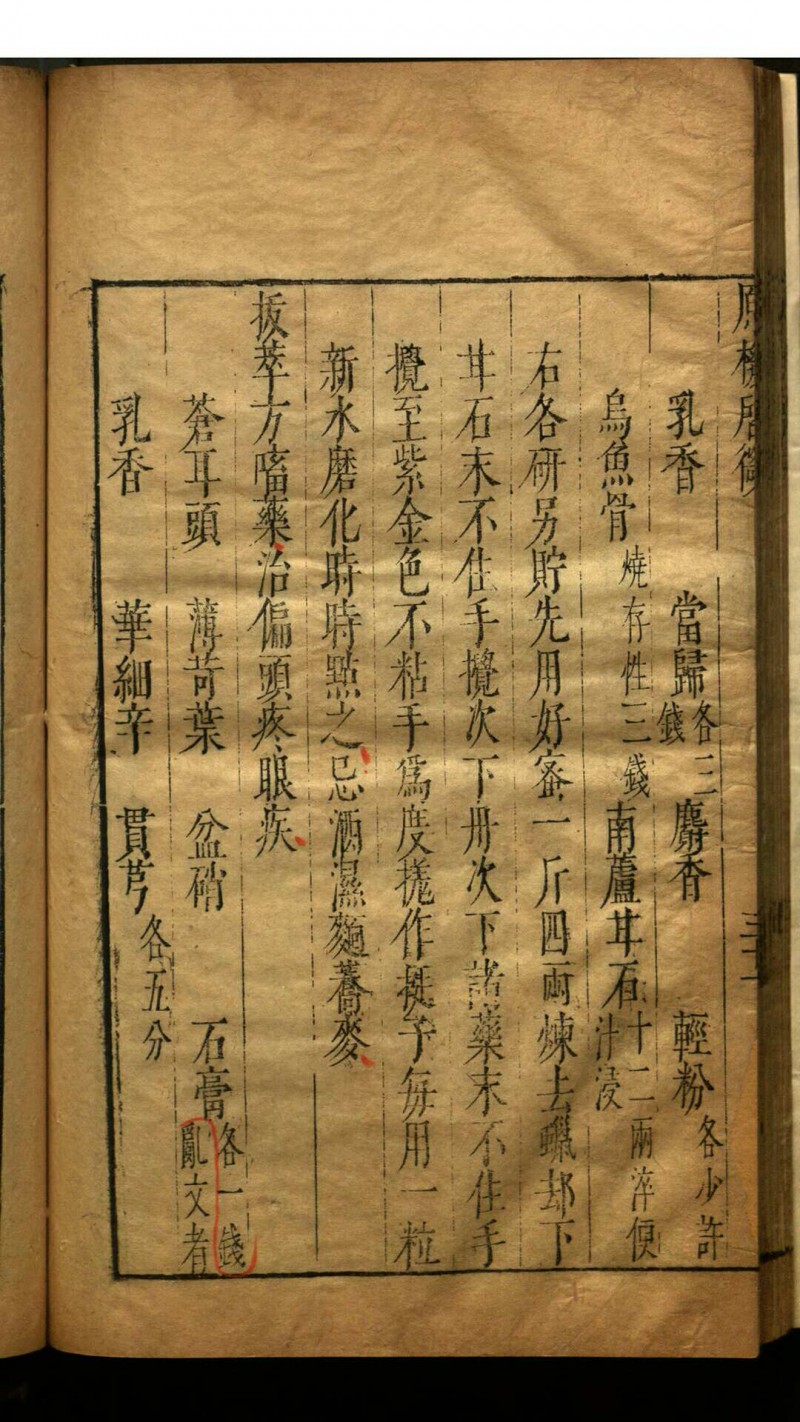 乳香　當歸各三錢　麝香　輕粉各少許
烏魚骨燒存性三錢　南蘆甘石十二兩淬便汁浸
右各研另貯先用好蜜一斤四兩煉去蠟却下
甘石末不住手攪次下丹次下諸藥末不住手
攪至紫金色不粘手爲度搓作挺子每用一粒
新水磨化時時點之忌酒濕麵蕎麥
拔萃方㗜藥治偏頭疼眼疾
蒼耳頭　薄苛葉　盆硝　石膏各一錢亂文者
乳香　華細辛　貫芎各五分